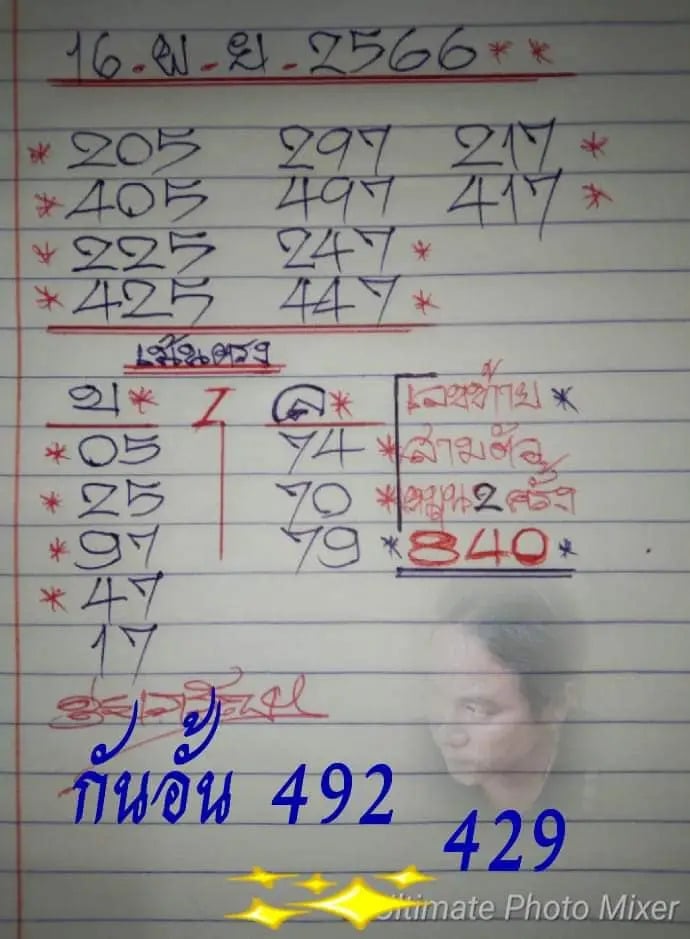 16.พ.ย.2566**
*205 297 217*
*405 497 417*
*225 247*
*425 447*
เน้นตรง
บ* I ล*
*05 74
*25 70
*97 79
*47
17
เลขท้าย*
*สามตัว
*หมุน2ครั้ง
*840*
กันอั้น 492
429
Ultimate Photo Mixer